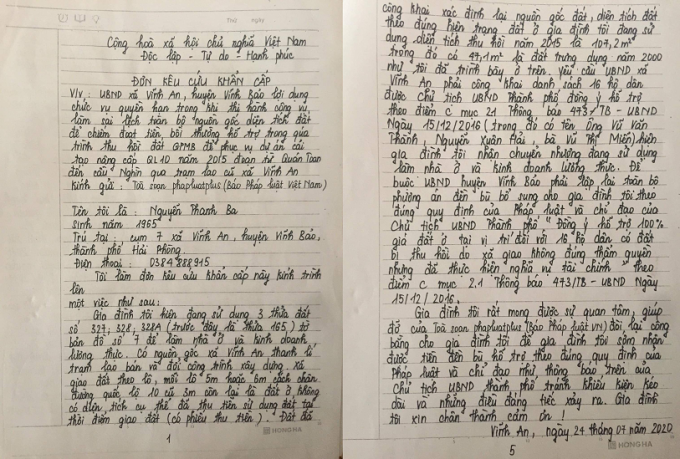 Thứ ngày
Cộng hoà xã hội chủ nghĩa Việt Nam
Độc lập - Tự do - Hạnh phúc
ĐƠN KÊU CỨU KHẨN CẤP
V/v: UBND xã Vĩnh An, huyện Vĩnh Bảo lợi dụng
chức vụ quyền hạn trong khi thi hành công vụ,
làm sai lệch toàn bộ nguồn gốc diện tích đất
để chiếm đoạt tiền bồi thường hỗ trợ trong quá
trình thu hồi đất GPMB để phục vụ dự án cải
tạo nâng cấp QL10 năm 2015 đoạn từ Quán Toan
đến cầu Nghìn qua trạm lao cũ xã Vĩnh An
Kính gửi: Toà soạn phapluatplus (Báo Pháp luật Việt Nam)
Tên tôi là: Nguyễn Thanh Ba
Sinh năm 1965
Trú tại: cụm 7 xã Vĩnh An, huyện Vĩnh Bảo,
thành phố Hải Phòng.
Điện thoại: 0384.888915
Tôi làm đơn kêu cứu khẩn cấp này kính trình
lên
một việc như sau:
Gia đình tôi hiện đang sử dụng 3 thửa đất
số 327; 328; 328A (trước đây là thửa 165) tờ
bản đồ số 7 để làm nhà ở và kinh doanh
lương thực. Có nguồn gốc xã Vĩnh An thanh lí
trạm lao bán và đổi công trình xây dựng. Xã
giao đất theo lô, mỗi lô 5m hoặc 6m cách chân
đường quốc lộ 10 cũ 3m còn lại là đất ở không
có diện tích cụ thể đã thu tiền sử dụng đất tại
thời điểm giao đất (có phiếu thu tiền). Đất đã
1
HONGHA
công khai xác định lại nguồn gốc đất, diện tích đất
theo đúng hiện trạng đất ở gia đình tôi đang sử
dụng diện tích thu hồi năm 2015 là 107,2m²
trong đó có 47,1m² là đất trưng dụng năm 2000
như tôi đã trình bày ở trên. Yêu cầu UBND xã
Vĩnh An phải công khai danh sách 16 hộ dân
được Chủ tịch UBND Thành phố đồng ý hỗ trợ
theo điểm c mục 2.1 Thông báo 473/TB - UBND
Ngày 15/12/2016 (trong đó có tên Ông Vũ Văn
Thành, Nguyễn Xuân Hải, bà Vũ Thị Miên) hiện
gia đình tôi nhận chuyển nhượng đang sử dụng
làm nhà ở và kinh doanh lương thực. Đề
buộc UBND huyện Vĩnh Bảo phải lập lại toàn bộ
phương án đền bù bổ sung cho gia đình tôi theo
đúng quy định của Pháp luật và chỉ đạo của
Chủ tịch UBND Thành phố "Đồng ý hỗ trợ 100%
giá đất ở tại vị trí đối với 16 hộ dân có đất
bị thu hồi do xã giao không đúng thẩm quyền
nhưng đã thực hiện nghĩa vụ tài chính" theo
điểm c mục 2.1 Thông báo 473/TB - UBND Ngày
15/12/2016.
Gia đình tôi rất mong được sự quan tâm, giúp
đỡ của Toà soạn phapluatplus (Báo Pháp luật VN) đòi lại công
bằng cho gia đình tôi để gia đình tôi sớm nhận
được tiền đền bù hỗ trợ theo đúng quy định của
Pháp luật và chỉ đạo như thông báo trên của
Chủ tịch UBND thành phố tránh khiếu kiện kéo
dài và những điều đáng tiếc xảy ra. Gia đình
tôi xin chân thành cảm ơn!
Vĩnh An, ngày 24 tháng 07 năm 2020
5
HONGHA